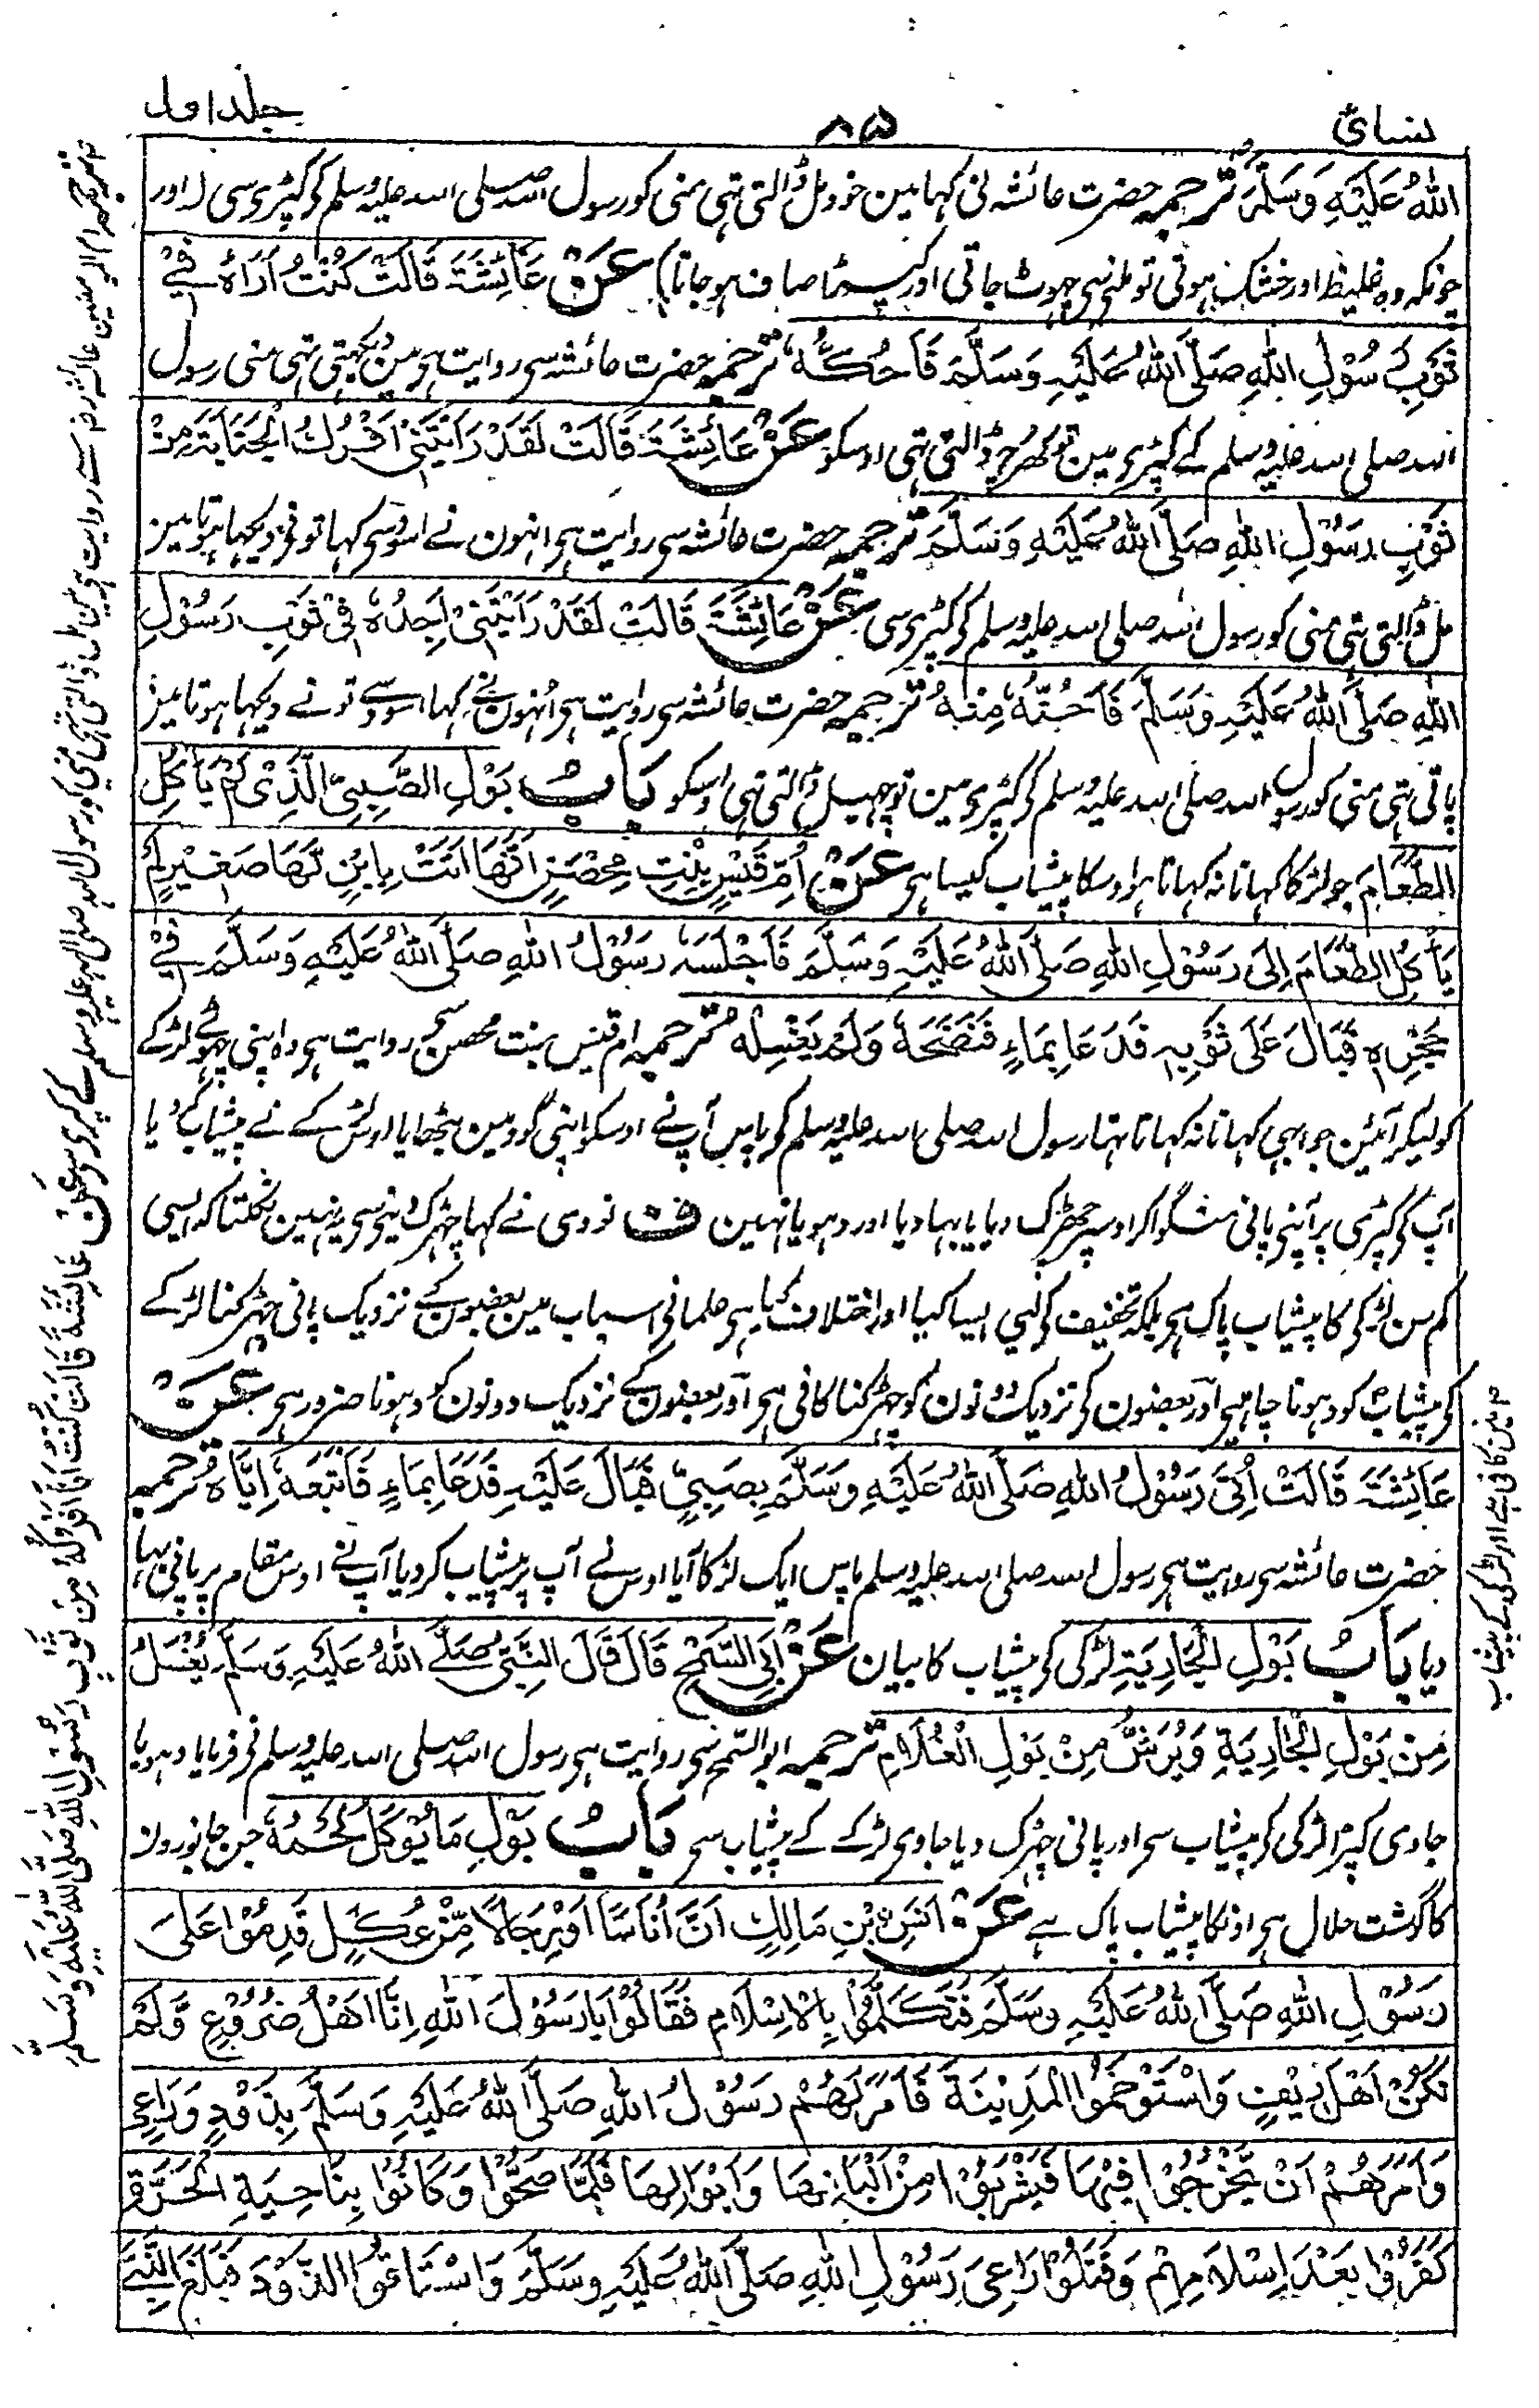 نسائی ۸۵ جلد اول
اللهُ عَلَيْهِ وَسَلَّمَ ترجمہ حضرت عائشہ نی کہا مین خود مل ڈالتی تہی منی کو رسول اللہ صلی اللہ علیہ وسلم کی کپڑی سی (اور
چونکہ وہ غلیظ اور خشک ہوتی تو ملنی سی چہوٹ جاتی اور کپڑا صاف ہو جاتا) عَنْ عَائِشَةَ قَالَتْ كُنْتُ اَرَاهُ فِيْ
ثَوْبِ رَسُوْلِ اللهِ صَلَّى اللهُ عَلَيْهِ وَسَلَّمَ فَاَحُكُّهٗ ترجمہ حضرت عائشہ سی روایت ہی مین دیکہتی تہی منی رسول
اللہ صلی اللہ علیہ وسلم کے کپڑی مین تو کھرچ ڈالتی تہی اوسکو عَنْ عَائِشَةَ قَالَتْ لَقَدْ رَاَيْتَنِيْ اَفْرُكُ الْجَنَابَةَ مِنْ
ثَوْبِ رَسُوْلِ اللهِ صَلَّى اللهُ عَلَيْهِ وَسَلَّمَ ترجمہ حضرت عائشہ سی روایت ہی انہون نے اسود سی کہا تو نی دیکہا ہوتا مین
مل ڈالتی تہی منی کو رسول اللہ صلی اللہ علیہ وسلم کی کپڑی سی عَنْ عَائِشَةَ قَالَتْ لَقَدْ رَاَيْتَنِيْ اَجِدُهٗ فِيْ ثَوْبِ رَسُوْلِ
اللهِ صَلَّى اللهُ عَلَيْهِ وَسَلَّمَ فَاَحُتُّهٗ مِنْهُ ترجمہ حضرت عائشہ سی روایت ہی اُنہون نے کہا اسود سے تو نے دیکہا ہوتا مین
پاتی تہی منی کو رسول اللہ صلی اللہ علیہ وسلم کی کپڑی مین تو چہیل ڈالتی تہی اوسکو بَابُ بَوْلِ الصَّبِيِّ الَّذِيْ لَمْ يَاْكُلِ
الطَّعَامَ جو لڑکا کہانا نہ کہاتا ہو اوسکا پیشاب کیسا ہی عَنْ اُمِّ قَيْسٍ بِنْتِ مِحْصَنٍ اَنَّهَا اَتَتْ بِابْنٍ لَّهَا صَغِيْرٍ لَمْ
يَاْكُلِ الطَّعَامَ اِلٰى رَسُوْلِ اللهِ صَلَّى اللهُ عَلَيْهِ وَسَلَّمَ فَاَجْلَسَهٗ رَسُوْلُ اللهِ صَلَّى اللهُ عَلَيْهِ وَسَلَّمَ فِيْ
حَجْرِهٖ فَبَالَ عَلٰى ثَوْبِهٖ فَدَعَا بِمَاءٍ فَنَضَحَهٗ وَلَمْ يَغْسِلْهُ ترجمہ ام قیس بنت محصن سی روایت ہی وہ اپنی چہوٹے لڑکے
کو لیکر آئین جو ابہی کہانا نہ کہاتا تہا رسول اللہ صلی اللہ علیہ وسلم کی پاس آپ نے اوسکو اپنی گود مین بٹھایا اوس لڑکے نے پیشاب کر دیا
آپ کی کپڑی پر آپنی پانی منگوا کر اوسپر چھڑک دیا یا بہا دیا اور دہویا نہین ف نووی نے کہا چہڑک دینی سی یہ نہین نکلتا کہ ایسی
کم سن لڑکی کا پیشاب پاک ہی بلکہ تخفیف کی لئی ایسا کیا اور اختلاف کیا ہی علمانی اس باب مین بعضون کے نزدیک پانی چہڑکنا لڑکے
کی پیشاب کو دہونا چاہیی اور بعضون کی نزدیک دونون کو چہڑکنا کافی ہی اور بعضون کے نزدیک دونون کو دہونا ضرور ہی عَنْ
عَائِشَةَ قَالَتْ اُتِيَ رَسُوْلُ اللهِ صَلَّى اللهُ عَلَيْهِ وَسَلَّمَ بِصَبِيٍّ فَبَالَ عَلَيْهِ فَدَعَا بِمَاءٍ فَاَتْبَعَهٗ اِيَّاهُ ترجمہ
حضرت عائشہ سی روایت ہی رسول اللہ صلی اللہ علیہ وسلم پاس ایک لڑکا آیا اوس نے آپ پر پیشاب کر دیا آپ نے اوس مقام پر پانی بہا
دیا بَابُ بَوْلِ الْجَارِيَةِ لڑکی کی پیشاب کا بیان عَنْ اَبِي السَّمْحِ قَالَ قَالَ النَّبِيُّ صَلَّى اللهُ عَلَيْهِ وَسَلَّمَ يُغْسَلُ
مِنْ بَوْلِ الْجَارِيَةِ وَيُرَشُّ مِنْ بَوْلِ الْغُلَامِ ترجمہ ابو السمح سی روایت ہی رسول اللہ صلی اللہ علیہ وسلم نی فرمایا دہویا
جاوی کپڑا لڑکی کی پیشاب سی اور پانی چہڑک دیا جاوی لڑکے کے پیشاب سی بَابُ بَوْلِ مَا يُؤْكَلُ لَحْمُهٗ جن جانورون
کا گوشت حلال ہی اونکا پیشاب پاک ہے عَنْ اَنَسِ بْنِ مَالِكٍ اَنَّ اُنَاسًا اَوْ رِجَالًا مِّنْ عُكْلٍ قَدِمُوْا عَلٰى
رَسُوْلِ اللهِ صَلَّى اللهُ عَلَيْهِ وَسَلَّمَ فَتَكَلَّمُوْا بِالْاِسْلَامِ فَقَالُوْا يَا رَسُوْلَ اللهِ اِنَّا اَهْلُ ضَرُوْعٍ وَّلَمْ
نَكُنْ اَهْلَ رِيْفٍ وَاسْتَوْخَمُوا الْمَدِيْنَةَ فَاَمَرَ لَهُمْ رَسُوْلُ اللهِ صَلَّى اللهُ عَلَيْهِ وَسَلَّمَ بِذَوْدٍ وَّرَاعٍ
وَاَمَرَهُمْ اَنْ يَّخْرُجُوْا فِيْهَا فَيَشْرَبُوْا مِنْ اَلْبَانِهَا وَاَبْوَالِهَا فَلَمَّا صَحُّوْا وَكَانُوْا بِنَاحِيَةِ الْحَرَّةِ
كَفَرُوْا بَعْدَ اِسْلَامِهِمْ وَقَتَلُوْا رَاعِيَ رَسُوْلِ اللهِ صَلَّى اللهُ عَلَيْهِ وَسَلَّمَ وَاسْتَاقُوا الذَّوْدَ فَبَلَغَ النَّبِيَّ
ترجمہ ام المومنین عائشہ رض سے روایت ہی مین مل ڈالتی تہی منی کو رسول اللہ صلی اللہ علیہ وسلم کے کپڑی سی عَنْ عَائِشَةَ قَالَتْ كُنْتُ اَفْرُكُهٗ مِنْ ثَوْبِ رَسُوْلِ اللهِ صَلَّى اللهُ عَلَيْهِ وَسَلَّمَ
مین کافی ہے اور لڑکی کے پیشاب